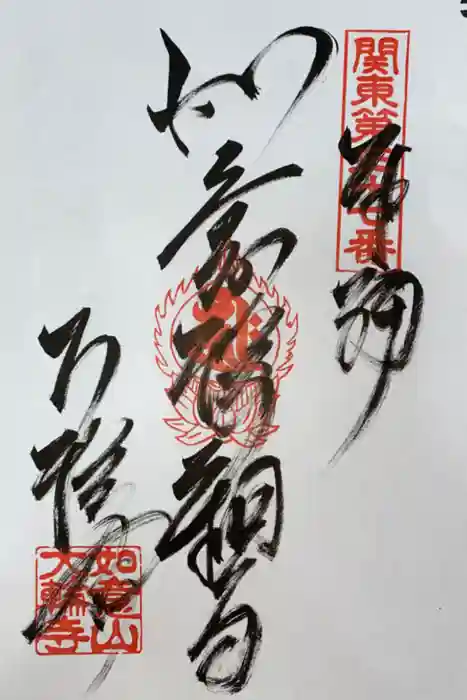 関東第三十七番
奉拝
如意輪観音
大輪寺
如意山
大輪寺